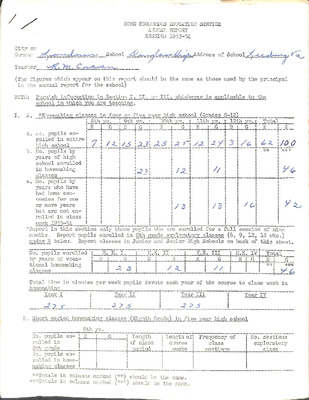 HOME ECONOMICS EDUCATION SERVICE
ANNUAL REPORT
SESSION 1953-54
City or
County Loudoun School Douglas High Address of School Leesburg Va
Teacher
(The figures which appear on this report should be the same as those used by the principal
in the annual report for the school)
NOTE: Furnish information in Section I, II, or III, whichever is applicable to the
school in which you are teaching.
I. A. *Homemaking classes in four or five year high school (Grades 8-12)
8th yr. 9th yr. 10th yr. 11th yr. 12th yr. Total
B G B G B G B G B G B G
a. No. pupils en-
rolled in entire
high school 7 12 15 23 25 25 12 24 3 16 62 100
b. No. pupils by
years of high
school enrolled
in homemaking
classes 23 12 11 46
c. No. pupils by
years who have
had home eco-
nomics for one
or more years
but are not en-
rolled in class
work 1953-54 13 13 16 42
*Report in this section only those pupils who are enrolled for a full session of nine
months. Report pupils enrolled in 8th grade exploratory classes (6, 9, 12, 18 wks.)
under B below. Report classes in Junior and Senior High Schools on back of this sheet.
No. pupils enrolled H.E. I H.E. II H.E. III H.E. IV Total
by years of voca-
tional homemaking
classes 23 12 11 46
Total time in minutes per week pupils devote each year of the course to class work in
homemaking
Year I Year II Year III Year IV
275 275 275
B. Short period homemaking classes (Eighth Grade) in five year high school
8th yr.
No. pupils en-
rolled in
8th grade
B G
Length
of class
period
Length of
course
weeks
Frequency of
class
meetings
No. sections
exploratory
class
No. pupils en-
rolled in home-
making classes
**Totals in columns marked (**) should be the same.
***Totals in columns marked (***) should be the same.